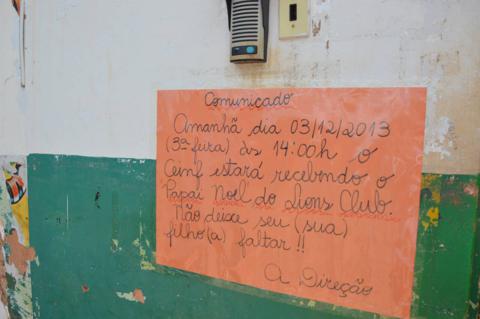 Comunicado
Amanhã dia 03/12/2013
(3ª feira) às 14:00h o
Ceinf estará recebendo o
Papai Noel do Lions Club.
Não deixe seu (sua)
filho(a) faltar!!
A Direção